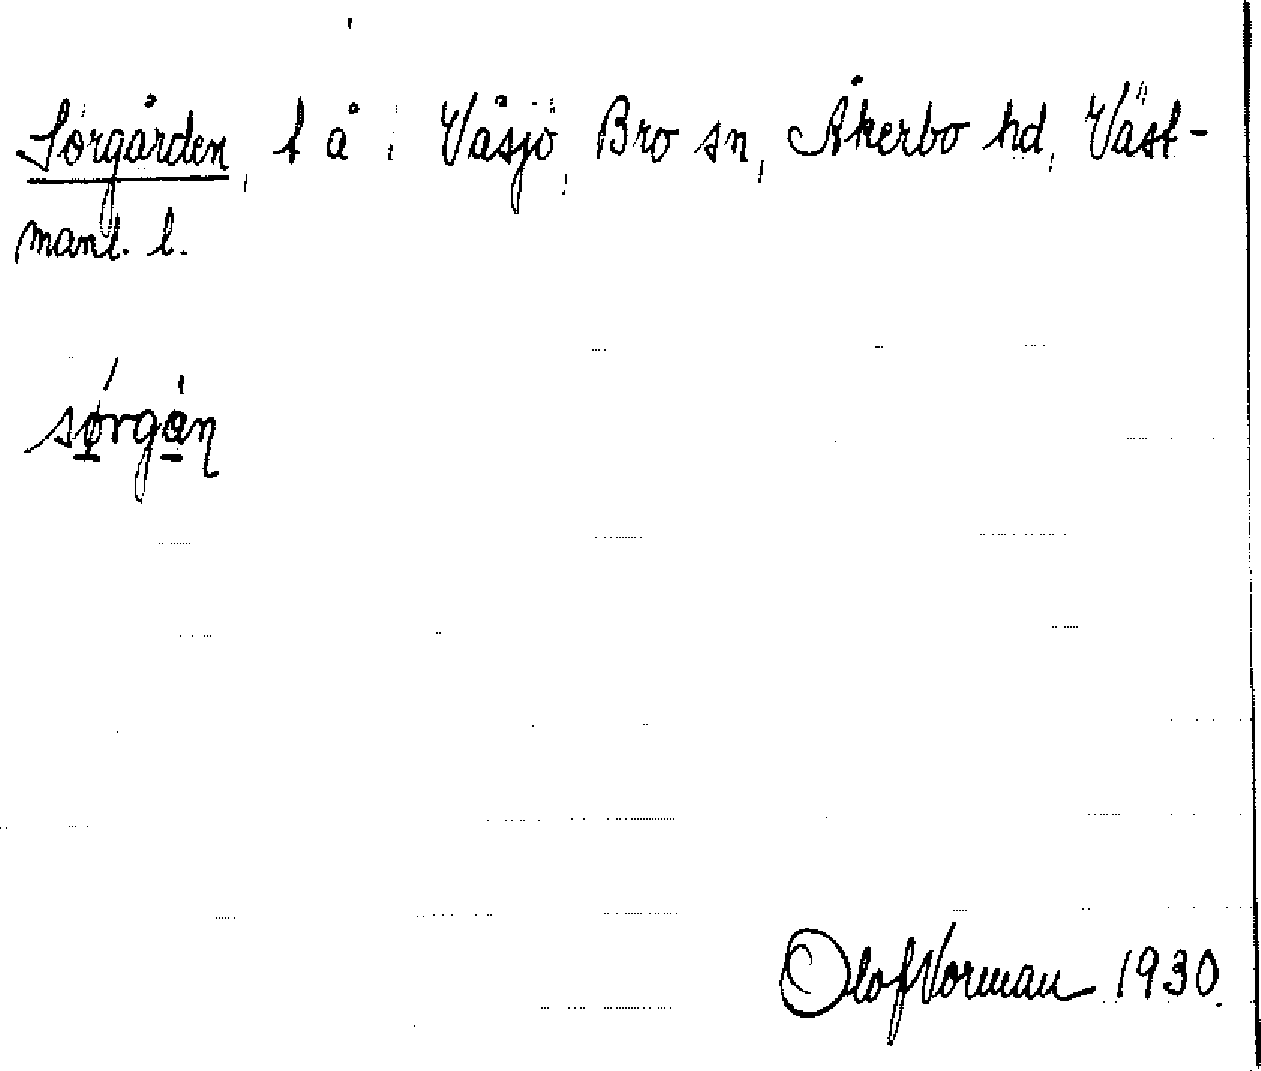 Sörgården, t å i Våsjö, Bro sn, Åkerbo hd, Väst-
manl. l.
sørgán
Olof Norman 1930.